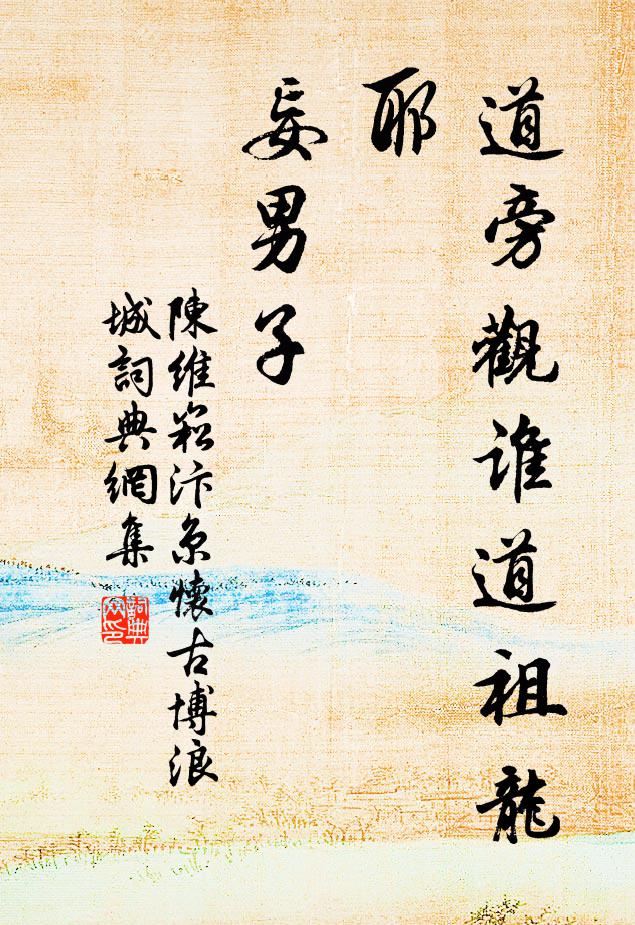 道旁觀誰道祖龍
耶
妄男子
陳維崧汴京懷古博浪
城詞典網集
詞典網印